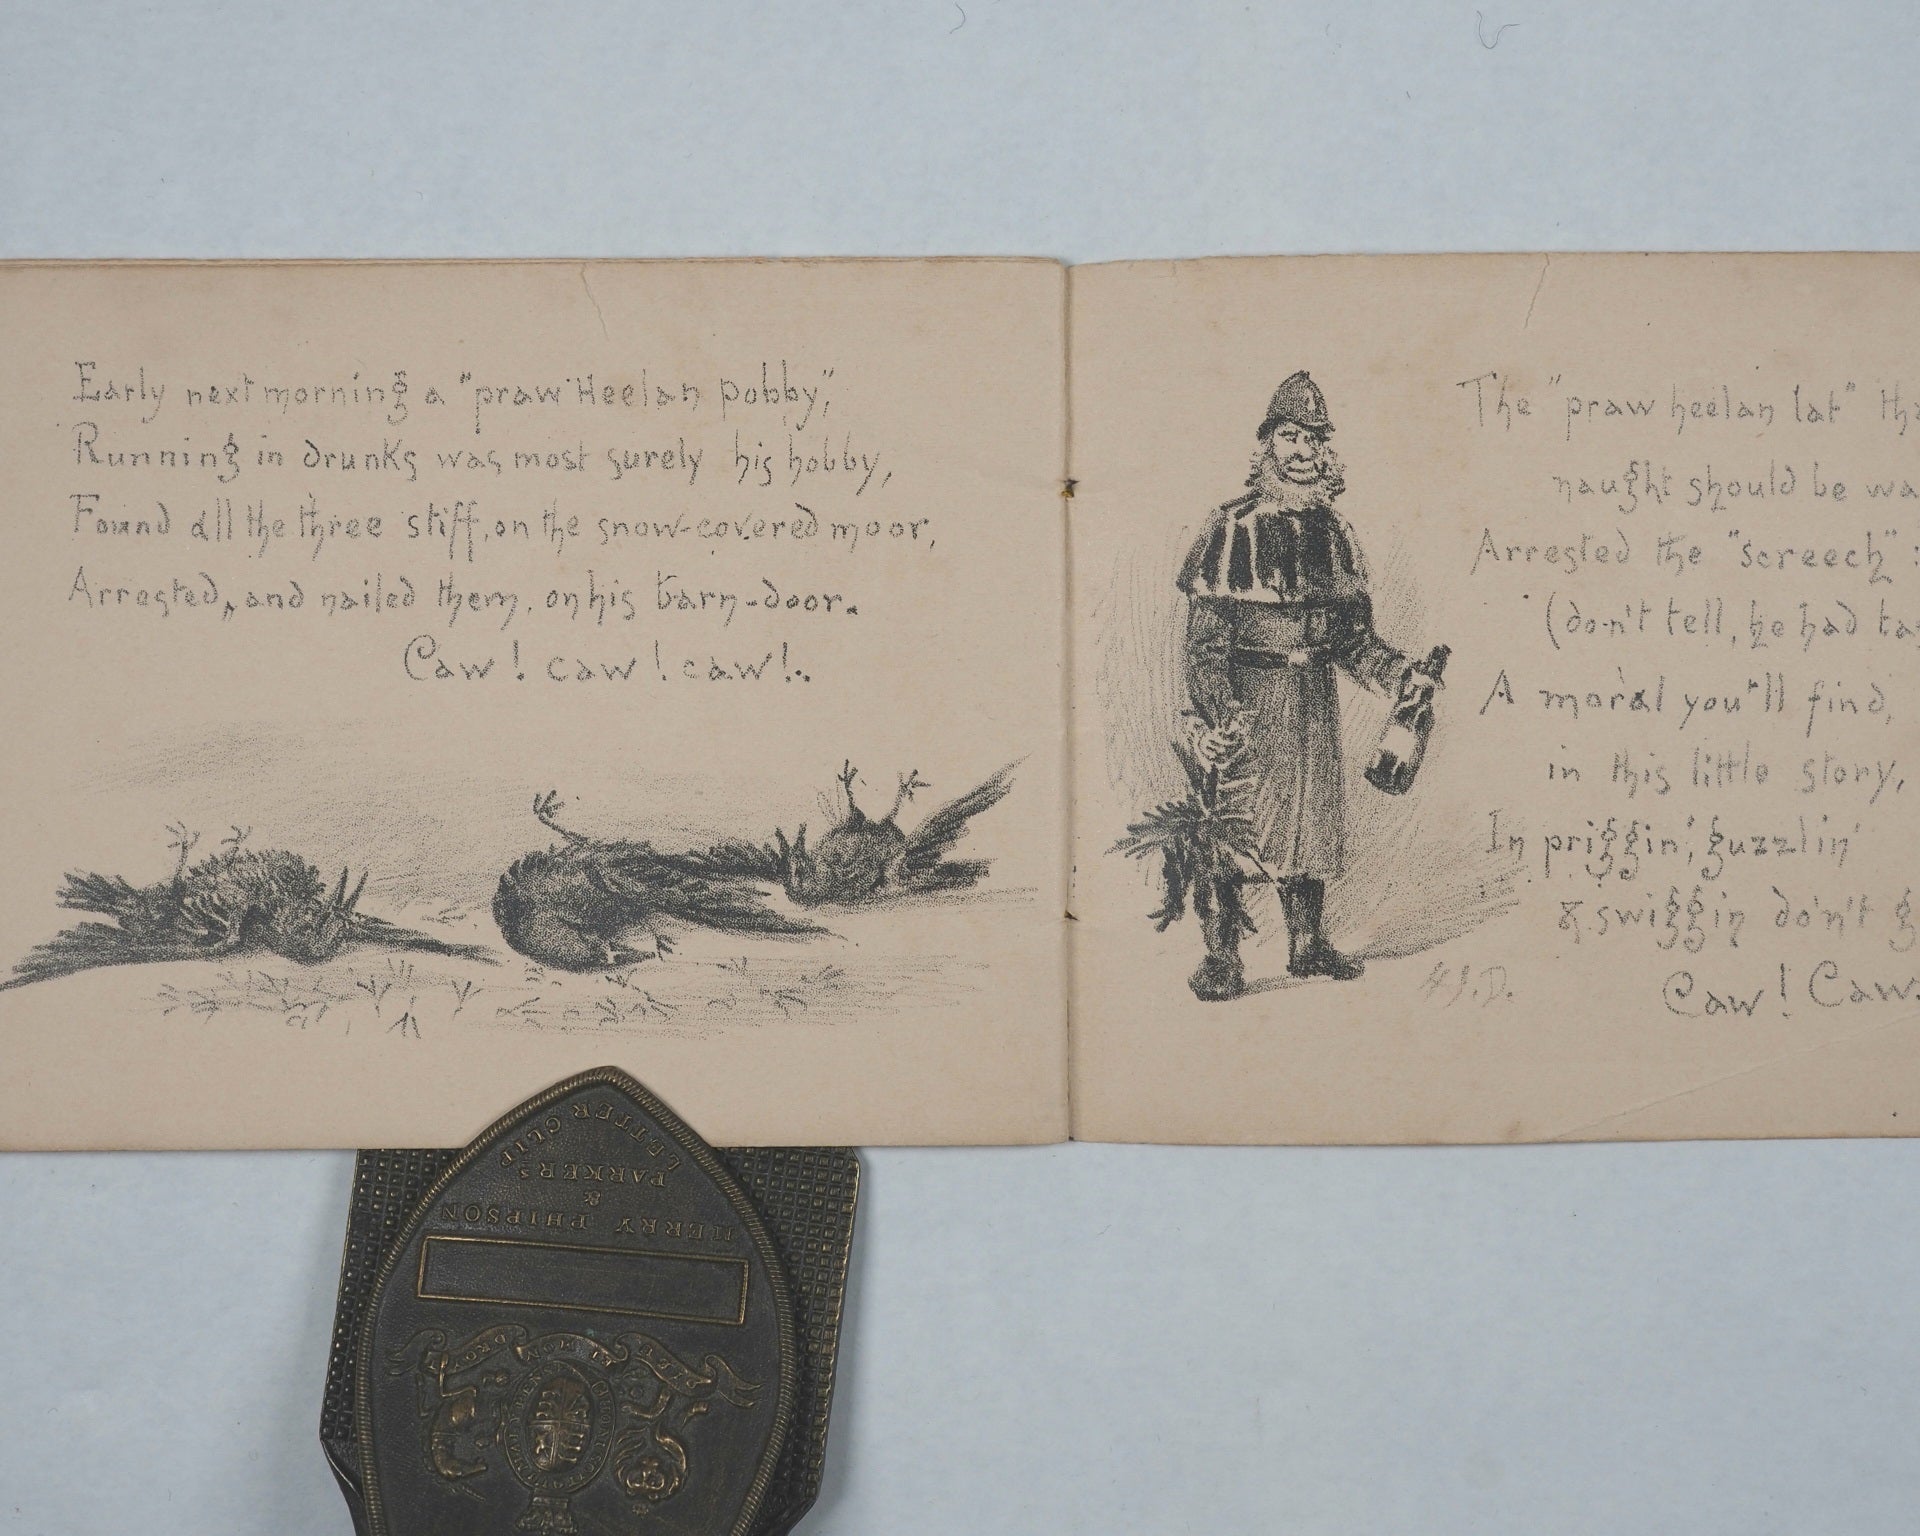 Early next morning a "praw Heelan pobby,"
Running in drunks was most surely his hobby,
Found all the three stiff, on the snow-covered moor,
Arrested, and nailed them, on his barn-door.
Caw! caw! caw!
The "praw heelan lat" tha
naught should be wa
Arrested the "screech" :
(don't tell, he had tas
A moral you'll find,
in this little story,
In priggin', guzzlin'
& swiggin don't g
Caw! Caw.
H.J.D.
LETTER CLIP
PARKER'S
&
MERRY PHIPSON
DROIT
ET MON